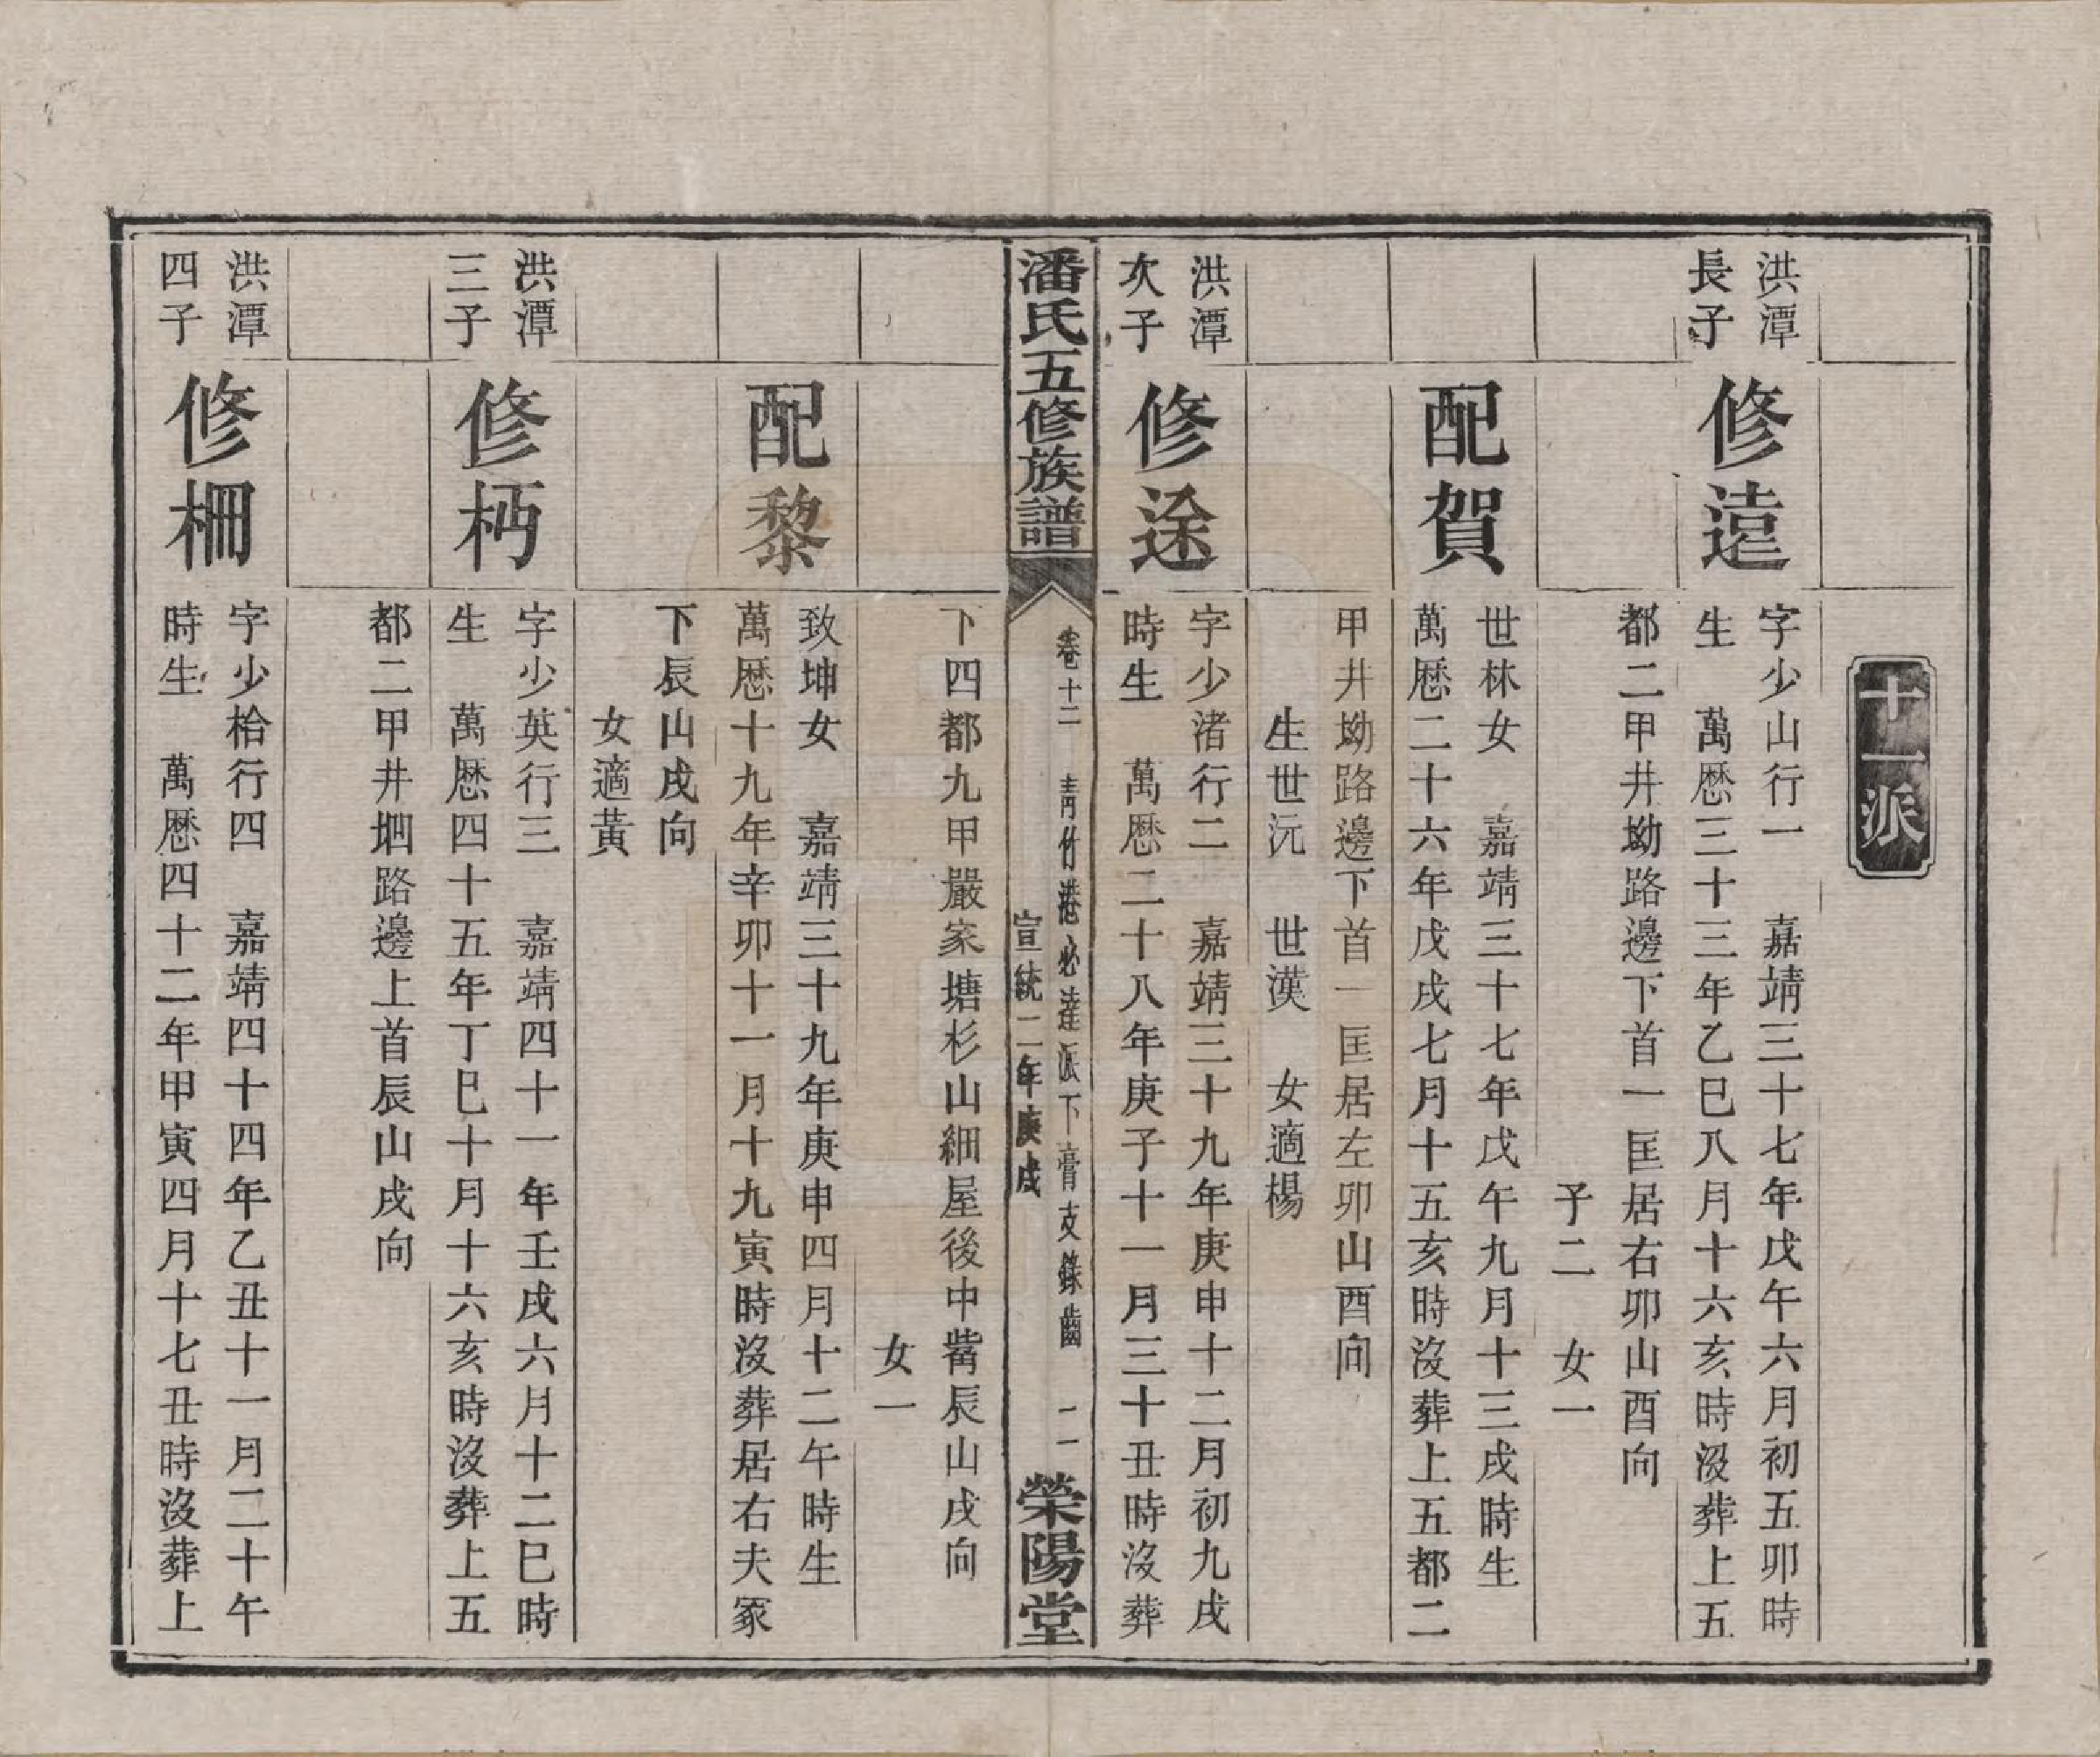 十一派
洪潭
長子
修遠
字少山行一　嘉靖三十七年戊午六月初五卯時
生　萬厯三十三年乙巳八月十六亥時沒葬上五
都二甲井坳路邊下首一匡居右卯山酉向
子二　女一
配賀
世林女　嘉靖三十七年戊午九月十三戌時生
萬厯二十六年戊戌七月十五亥時沒葬上五都二
甲井坳路邊下首一匡居左卯山酉向
生世沅　世漢　女適楊
洪潭
次子
修途
字少渚行二　嘉靖三十九年庚申十二月初九戌
時生　萬厯二十八年庚子十一月三十丑時沒葬
潘氏五修族譜
卷十二　青竹港必達派下膏支錄齒　二一
宣統二年庚戌
榮陽堂
下四都九甲嚴家塘杉山細屋後中觜辰山戌向
女一
配黎
致坤女　嘉靖三十九年庚申四月十二午時生
萬厯十九年辛卯十一月十九寅時沒葬居右夫冢
下辰山戌向
女適黃
洪潭
三子
修杩
字少英行三　嘉靖四十一年壬戌六月十二巳時
生　萬厯四十五年丁巳十月十六亥時沒葬上五
都二甲井坳路邊上首辰山戌向
洪潭
四子
修柵
字少枱行四　嘉靖四十四年乙丑十一月二十午
時生　萬厯四十二年甲寅四月十七丑時沒葬上